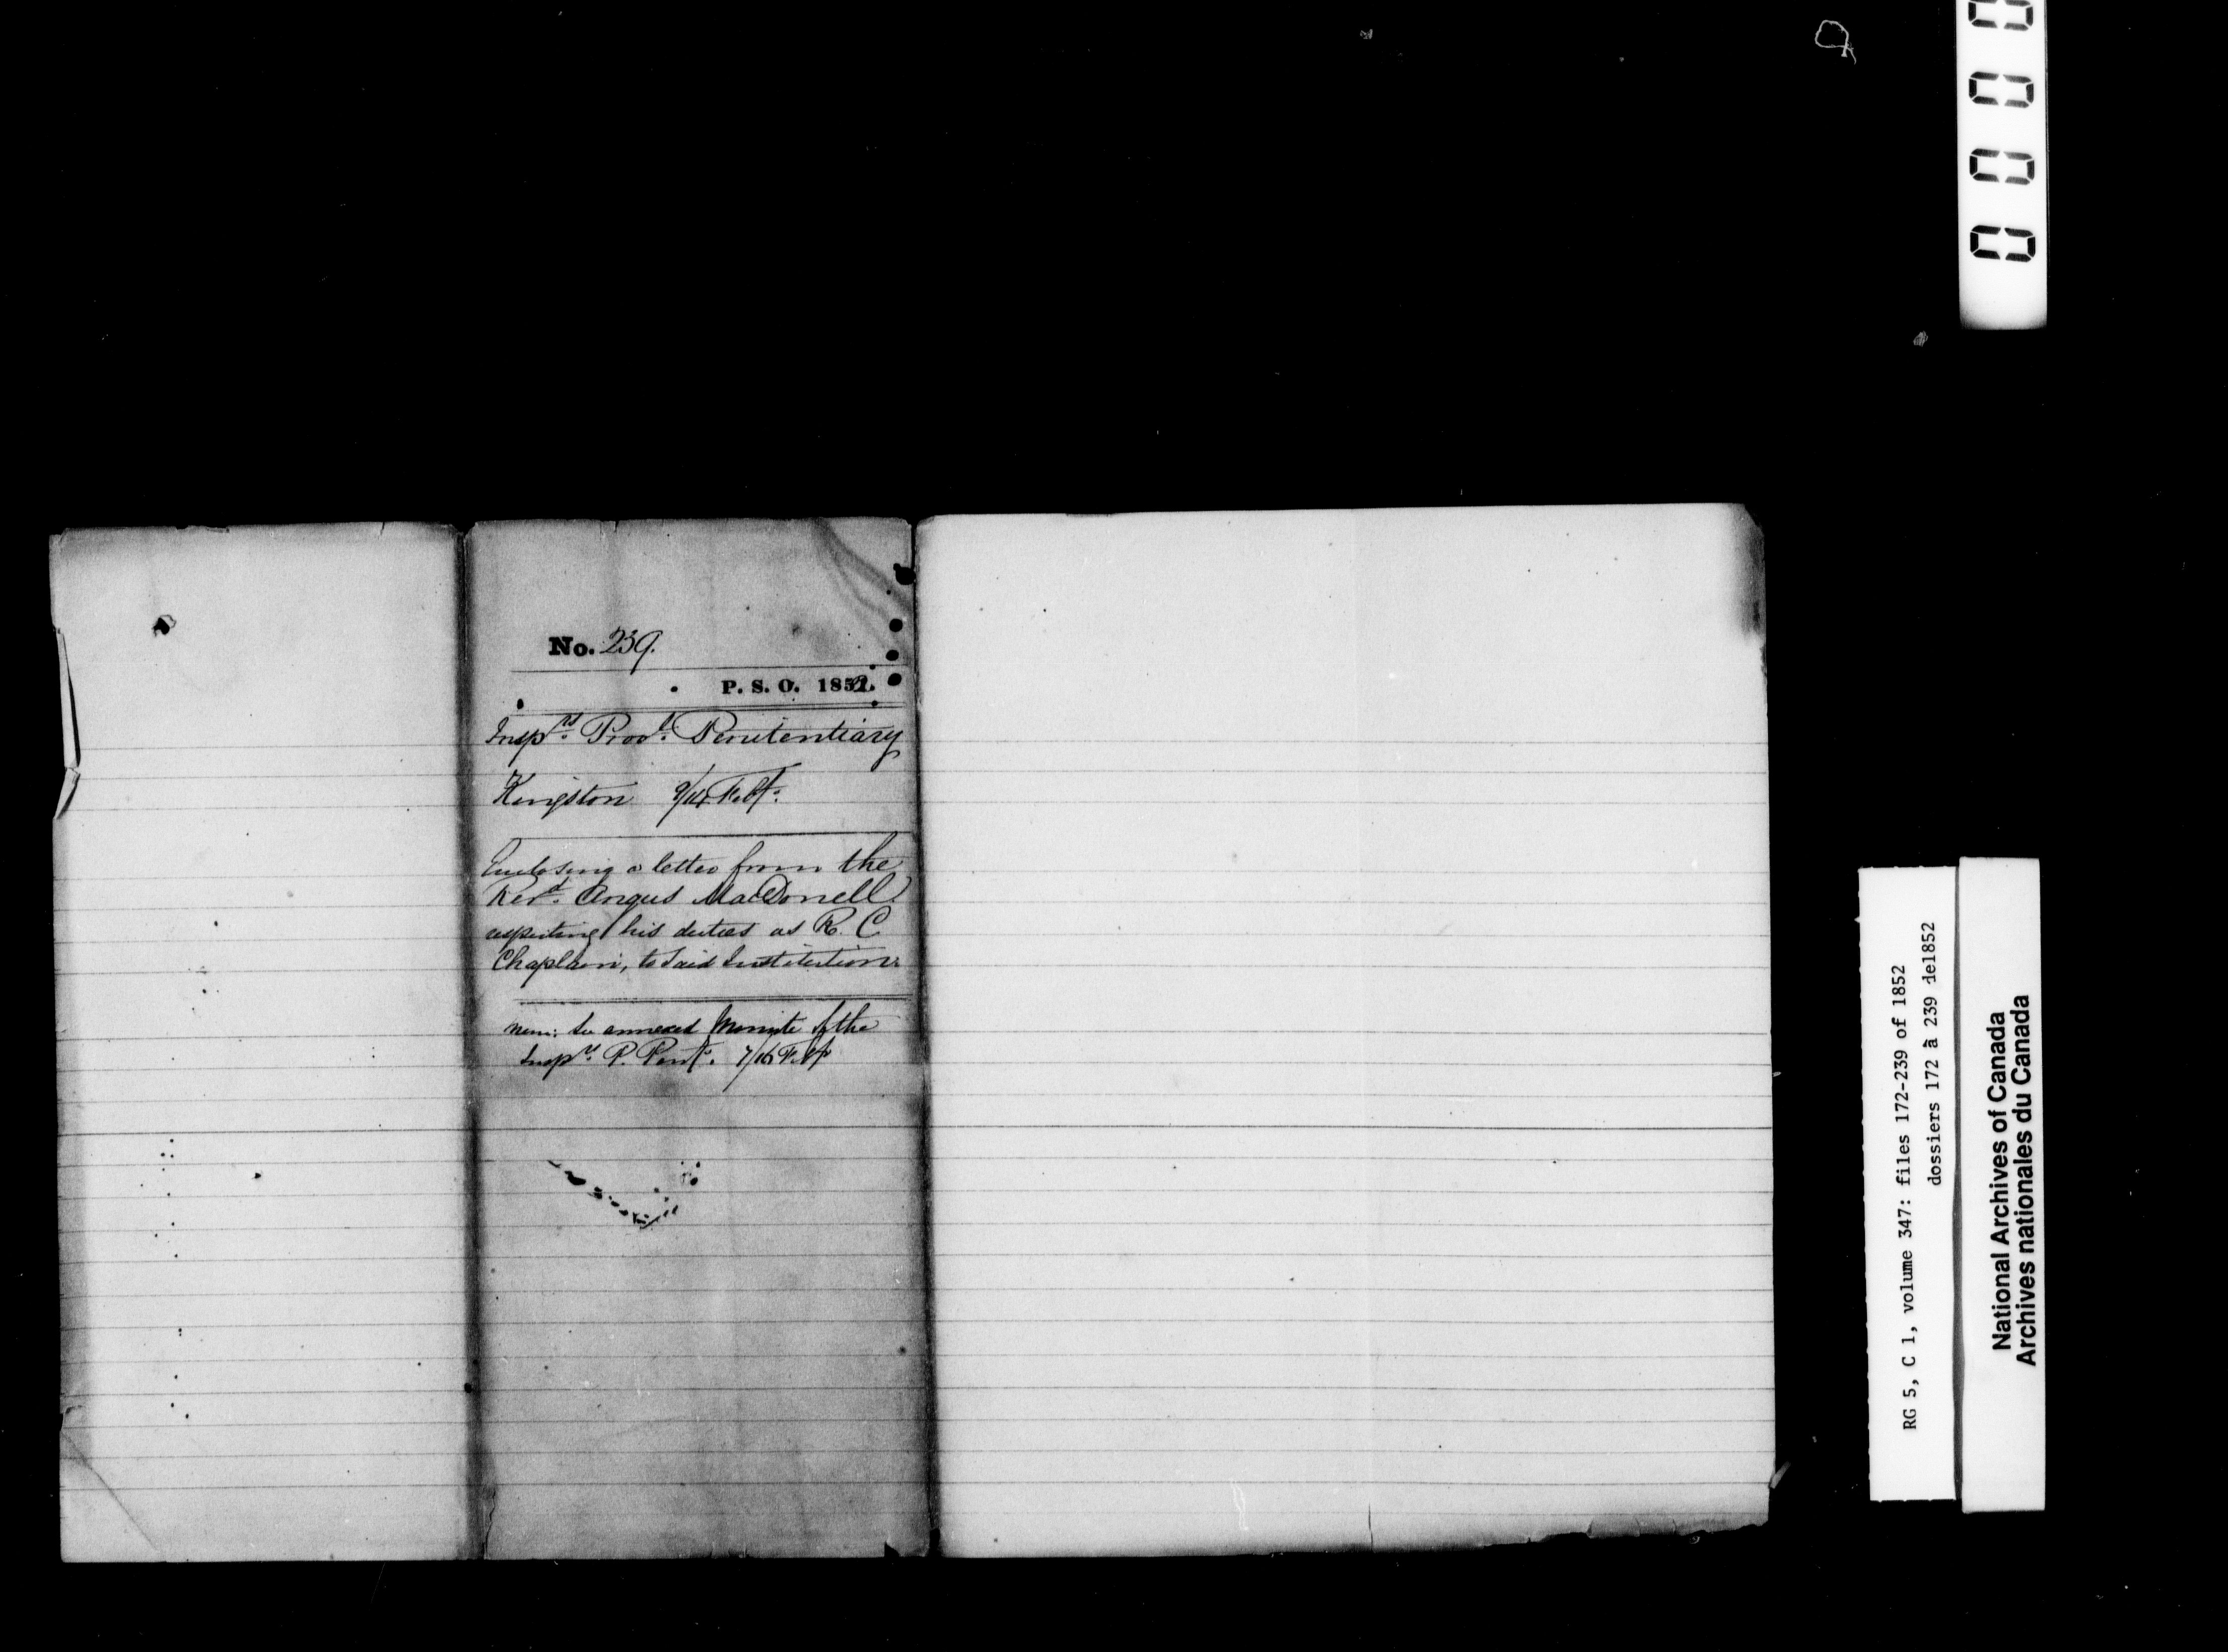 No. 239.
P. S. O. 1852.
Insprs. Provl. Penitentiary
Kingston 9/14 Feby.
Enclosing a letter from the
Revd. Angus MacDonell
respecting his duties as R. C.
Chaplain, to said Institution.
mem: See annexed Minute of the
Insprs. P. Penty. 7/16 Feby
0 0 0 0
RG 5, C 1, volume 347: files 172-239 of 1852
dossiers 172 à 239 de1852
National Archives of Canada
Archives nationales du Canada